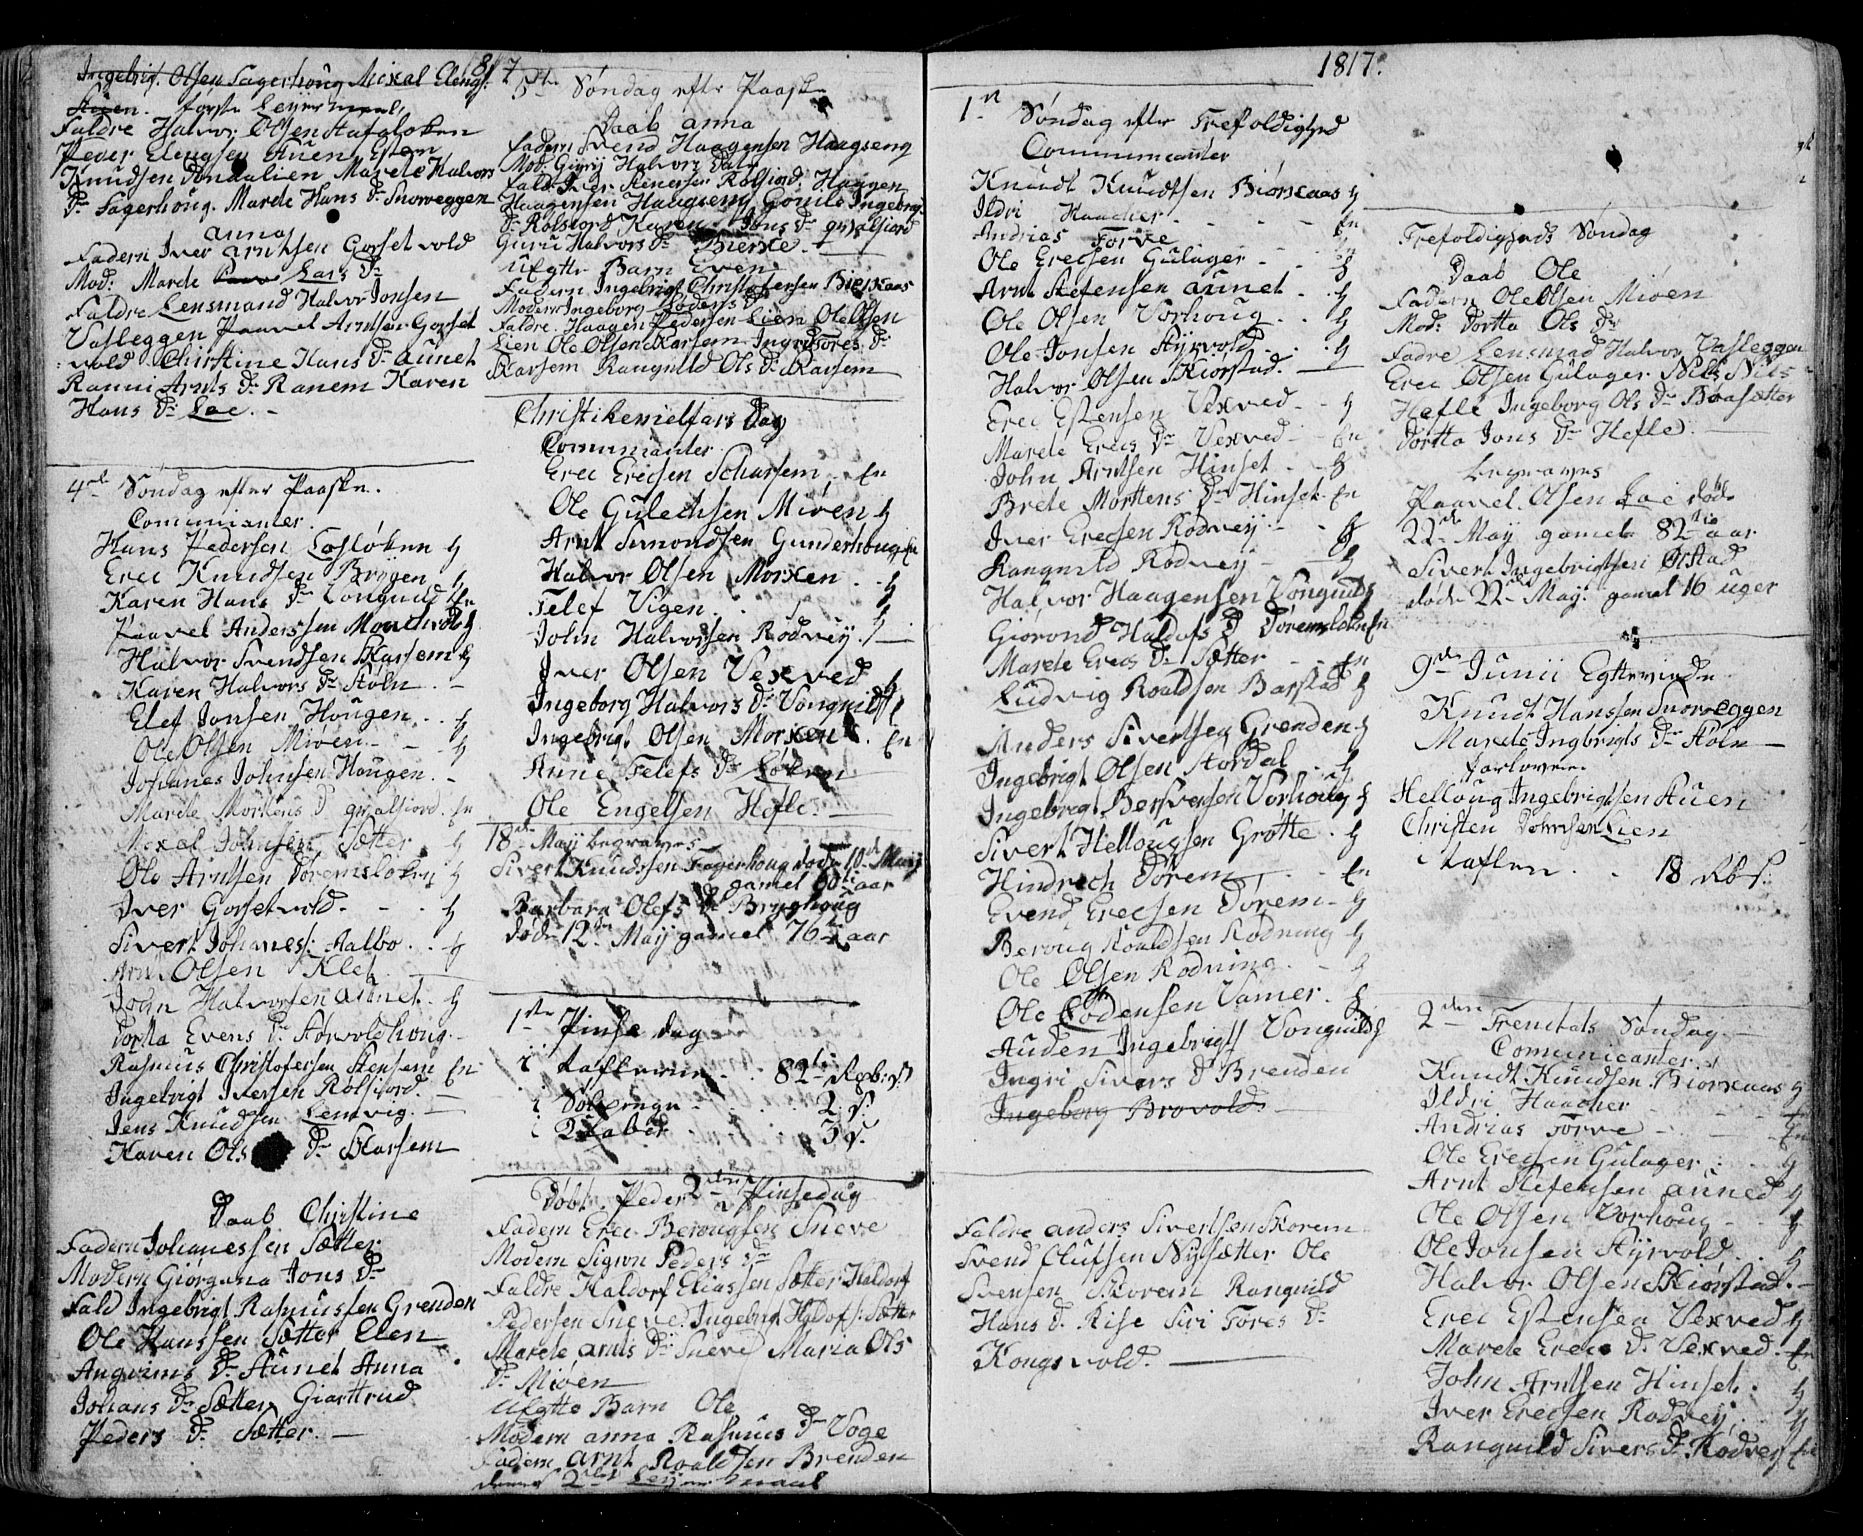 1817
Ingebrigt Olsen Fagerhoug Mixal Elengs:
Auen. første Leyermaal
Faldre Halvor Olsen Stafaloken
Peder Elengsen Auen Esten
Knudsen Dondalien Marele Halvors
Dr Fagerhoug. Marde Hans Dr Snoweggen
anna
Fadern Iver Arntsen Gorset vold
Mod: Marde Lars Dr
Faldre Lensmand Halvor Jonsen
Vasleggen Paavel Arntsen Gorset
vold Christine Hans Dr aunet
Ranni Arnts Dr Ranem Karen
Hans Dr Loe. -
4de Søndag efter Paaske.
Comunicanter.
Hans Pedersen Losløken
Erec Knudsen Bryggen
Karen Hans Dr Vonguild En
Paavel Anderssen
Halvor Svendsen Skarsem
Karen Halvors Dr Støln
Elef Jonsen Hougen
Ole Olsen Miøen
Johanes Johnsen Hougen.
Marele Mortens D qvalsiord. En
Mixal Johnsen Sætter
Ole Arntsen Doremsloken
Iver Gorsetvold.
Sivert Johanes: Aalbo
Arnt Olsen Klet
John Halvorsen aunet
Dorta Evens Dr Storvoldhoug.
Rasmus Christofersen Stensem En
Ingebrigt Iversen Rolsiord.
Jens Knudsen Lemvig.
Karen Ols Dr Skarsem
Daab Christine
Fadern Johanessen Sætter
Modern Giørgana Jons Dr
Fald Ingebrigt Rasmussen Grenden
Ole Hanssen Sætter Elen
Angrims Dr Aunet Anna
Johans Dr Sætter Giarttrud
Peders Dr Sætter. -
5te Søndag efter Paaske
Daab anna
Fadern Svend Haagensen Haagseng
Mod: Giøry Halvors Datr
Fald: Iver Stenersen Rolsiord. Haagen
Haagensen Haagseng Gomle Ingebrigt
Dr Rolsiord Karen Jons Dr qvalsiord
Guru Halvors Dr Bierke.
Uegtte Barn Even
Fadern Ingebrigt Christofersen Bierkaas
Modern Ingeborg Lodens Dr
Faldre. Haagen Pedersen Lien Ole Olsen
Lien Ole Olsen Skarsem Ingri Tores Dr
Skarsem Ranguild Ols Dr Skarsem
Christi Hemelfars Dag
Communanter
Erec Erecsen Scharsem. En
Ole Gulechsen Miøen
Arnt Simondsen Gunderhoug En
Halvor Olsen Morken
Telef Vigen
John Halvorsen Rødvey
Iver Olsen Vexved
Ingeborg Halvors Dr Vonguild
Ingebrigt Olsen Morken En
Anne Telefs Dr Løken
Ole Engelsen Hefle.
18de Maij begraves
Sivert Knudssen Fagerhoug døde 10de Maij
gamel 60ti aar
Barbara Olefs Dr Bryghoug
døde 12de Maij gamel 76ti aar
1ste Pinse dag
i taflerne 82ti Rob: S
i Sølpenge 2 S.
i 2 Taber 3 S.
Døbt Peder 2den Pinsedag
Fadern Erec Berougsen Sneve
Modern Sigrou Peders Dr
Faldre Haldorf Eliassen Sætter Haldorf
Pedersen Sneve Ingebrigt Haldofs: Sætter
Marele arnts Dr Sneve Maria Ols
Dr Miøen
Uegtte Barn Ole
Modern anna Rasmus Dr Voge
Fadern Arnt Roaldsen Brenden
deres 2det Leyermaal
1817.
1ste Søndag efter Trefoldighed
Communicanter
Knudt Knudtsen Biørkaas
Ildri Haacher En
Andrias Torve
Ole Erecsen Gulager
Arnt Stefensen aunet
Ole Olsen Vorhoug
Ole Jonsen Styrvold
Halvor Olsen Skiorstad.
Erec Estensen Vexved
Marele Erecs Dr Vexved. En
John Arntsen Hinset
Brete Mortens Dr Hinset. En
Iver Erecsen Rodvey
Ranguild Rodvey
Halvor Haagensen Vonguild
Giørond Haldofs D Døremsloken En
Marele Erecs Dr Sætter En
Ludvig Roaldsen Barstad
Anders Sivertsen Grenden
Ingebrigt Olsen Stordal
Ingebregt Bersvensen Vorhoug
Sivert Hellougsen Grøtte
Hindrech Dorem En
Evend Erecsen Dørem
Beroug Roaldsen Rodning
Ole Olsen Rodning
Ole Lodensen Vamer
Auden Ingebrigts Vonguild
Ingri Sivers D Brenden
Ingeborg Brovold
Faldre anders Sivertsen Skorem
Svend Olufsen Nysætter Ole
Svensen Skorem Ranguild
Hans D. Rise Siri Tores Dr
Kongsvold.
Trefoldigheds Søndag
Daab Ole
Fadern Ole Olsen Miøen
Mod: Dortta Ols Dr
Fadre Lensmad Halvor Vasleggen
Erec Olsen Gulager Nils Nils
Hefle Ingeborg Ols Dr Baasætter
Dortta Jons Dr Hefle.
begraves
Paavel Olsen Loe døde
22de Maij gamel 82tie aar
Sivert Ingebrigtsen Ørstad
døde 22de Maij. gamel 16 uger
9de Junii Egtteviede
Knudt Hanssen Snoweggen
Marele Ingbrigts Dr Støln
forlovere
Helloug Ingebrigtsen Auen
Christen Johnsen Lien
i taflen 18 Rb S.
2den Trenetats Søndag
Comunicanter
Knudt Knudsen Biørkaas
Ildri Haacher
Andrias Torve En
Ole Erecsen Gulager
Arnt Stefensen auned
Ole Olsen Vorhoug
Ole Jonsen Styrvold
Halvor Olsen Skiorstad.
Erec Estensen Vexved
Marele Erecs D. Vexved. En
John Arntsen Hinset
Iver Erecsen Rodvey
Ranguild Sivers D. Rodvey En